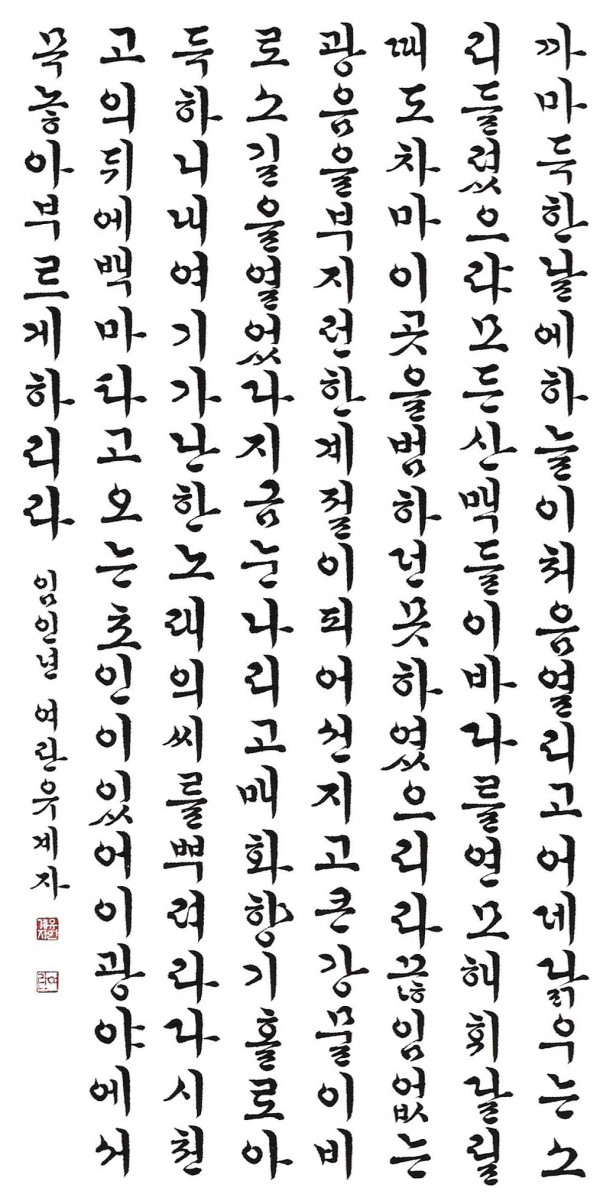 까마득한날에하늘이처음열리고어데닭우는소
리들렸으랴모든산맥들이바다를연모해휘날릴
때도차마이곳을범하던못하였으리라끊임없는
광음을부지런한계절이피어선지고큰강물이비
로소길을열었다지금눈나리고매화향기홀로아
득하니내여기가난한노래의씨를뿌려라다시천
고의뒤에백마타고오는초인이있어이광야에서
목놓아부르게하리라 임인년 여란유계자